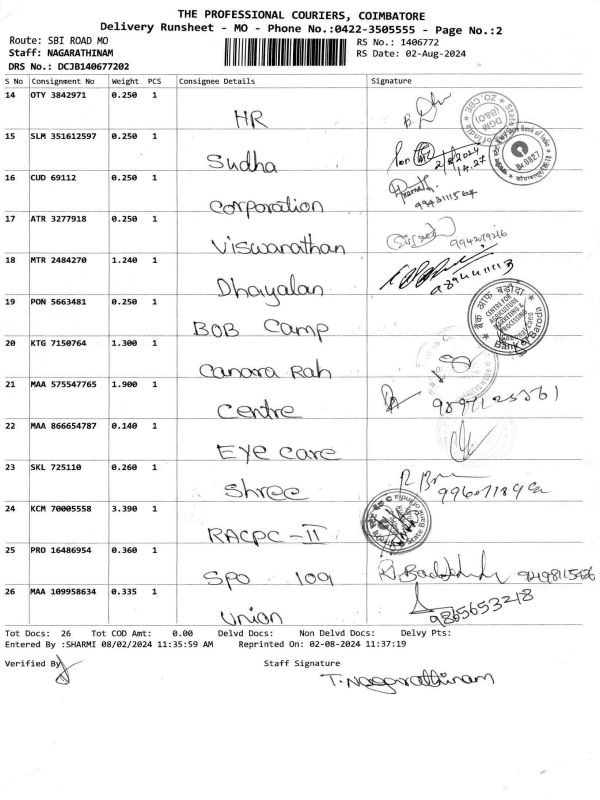 THE PROFESSIONAL COURIERS, COIMBATORE
Delivery Runsheet - MO - Phone No.:0422-3505555 - Page No.:2
Route: SBI ROAD MO RS No.: 1406772
Staff: NAGARATHINAM RS Date: 02-Aug-2024
DRS No.: DCJB140677202
S No Consignment No Weight PCS Consignee Details Signature
14 OTY 3842971 0.250 1
HR
15 SLM 351612597 0.250 1
Sudha 2/8/2024
14.27
16 CUD 69112 0.250 1
Corporation
17 ATR 3277918 0.250 1
Viswanathan
18 MTR 2484270 1.240 1
Dhayalan
19 PON 5663481 0.250 1
BOB Camp
20 KTG 7150764 1.300 1
Canara Rah
21 MAA 575547765 1.900 1
Centre
22 MAA 866654787 0.140 1
Eye care
23 SKL 725110 0.260 1
Shree
24 KCM 70005558 3.390 1
RACPC - II
25 PRO 16486954 0.360 1
SPO 109
26 MAA 109958634 0.335 1
Union 9865653218
Tot Docs: 26 Tot COD Amt: 0.00 Delvd Docs: Non Delvd Docs: Delvy Pts:
Entered By :SHARMI 08/02/2024 11:35:59 AM Reprinted On: 02-08-2024 11:37:19
Verified By Staff Signature
T. Nagarathinam